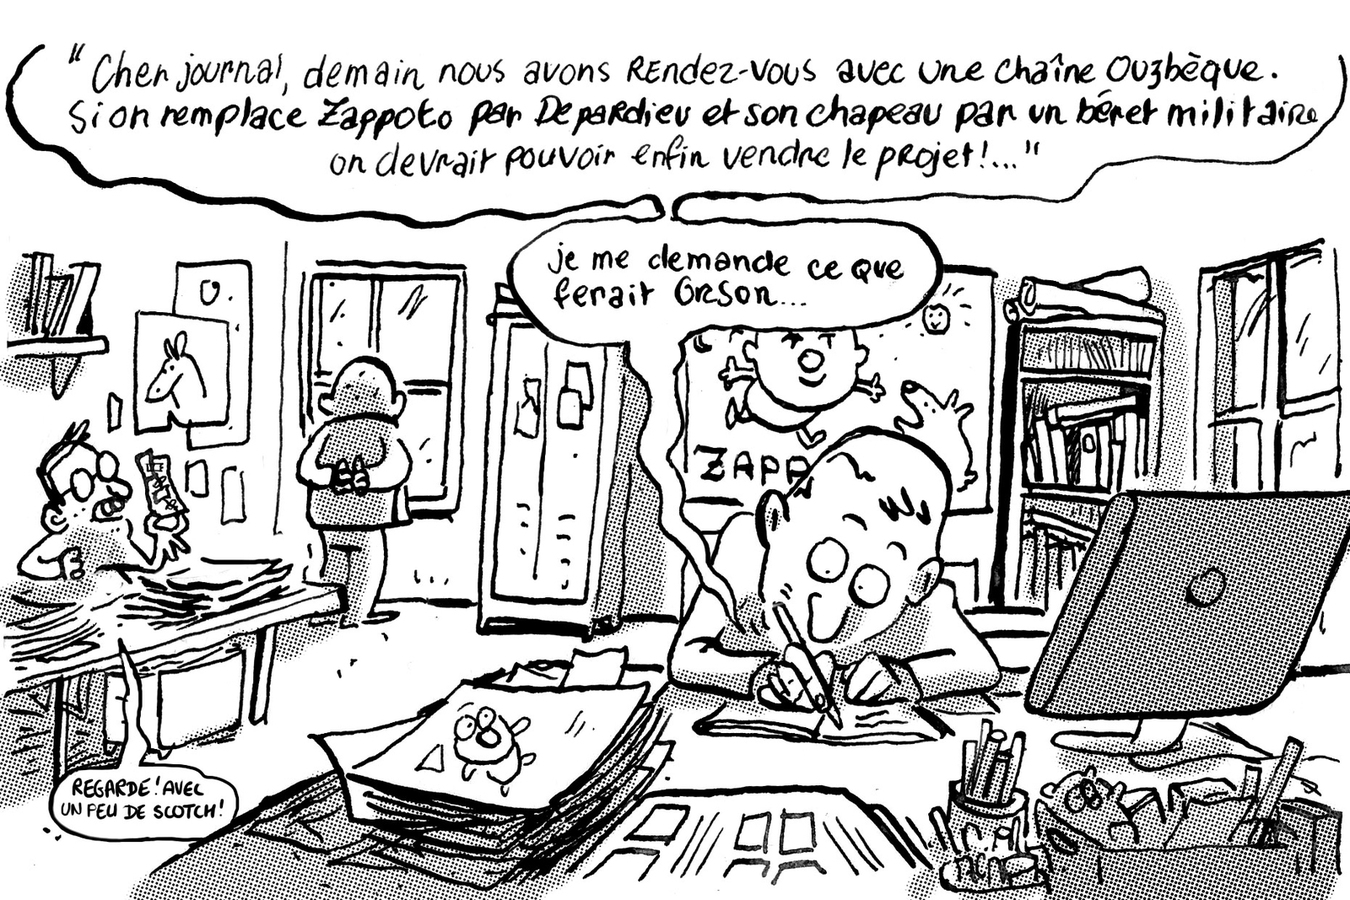 " Cher journal, demain nous avons RENDEZ-VOUS avec une chaîne Ouzbèque.
Si on remplace Zappoto par Depardieu et son chapeau par un béret militaire
on devrait pouvoir enfin vendre le projet!..."
je me demande ce que
ferait Orson...
ZAPP
REGARDE! AVEC
UN PEU DE SCOTCH!